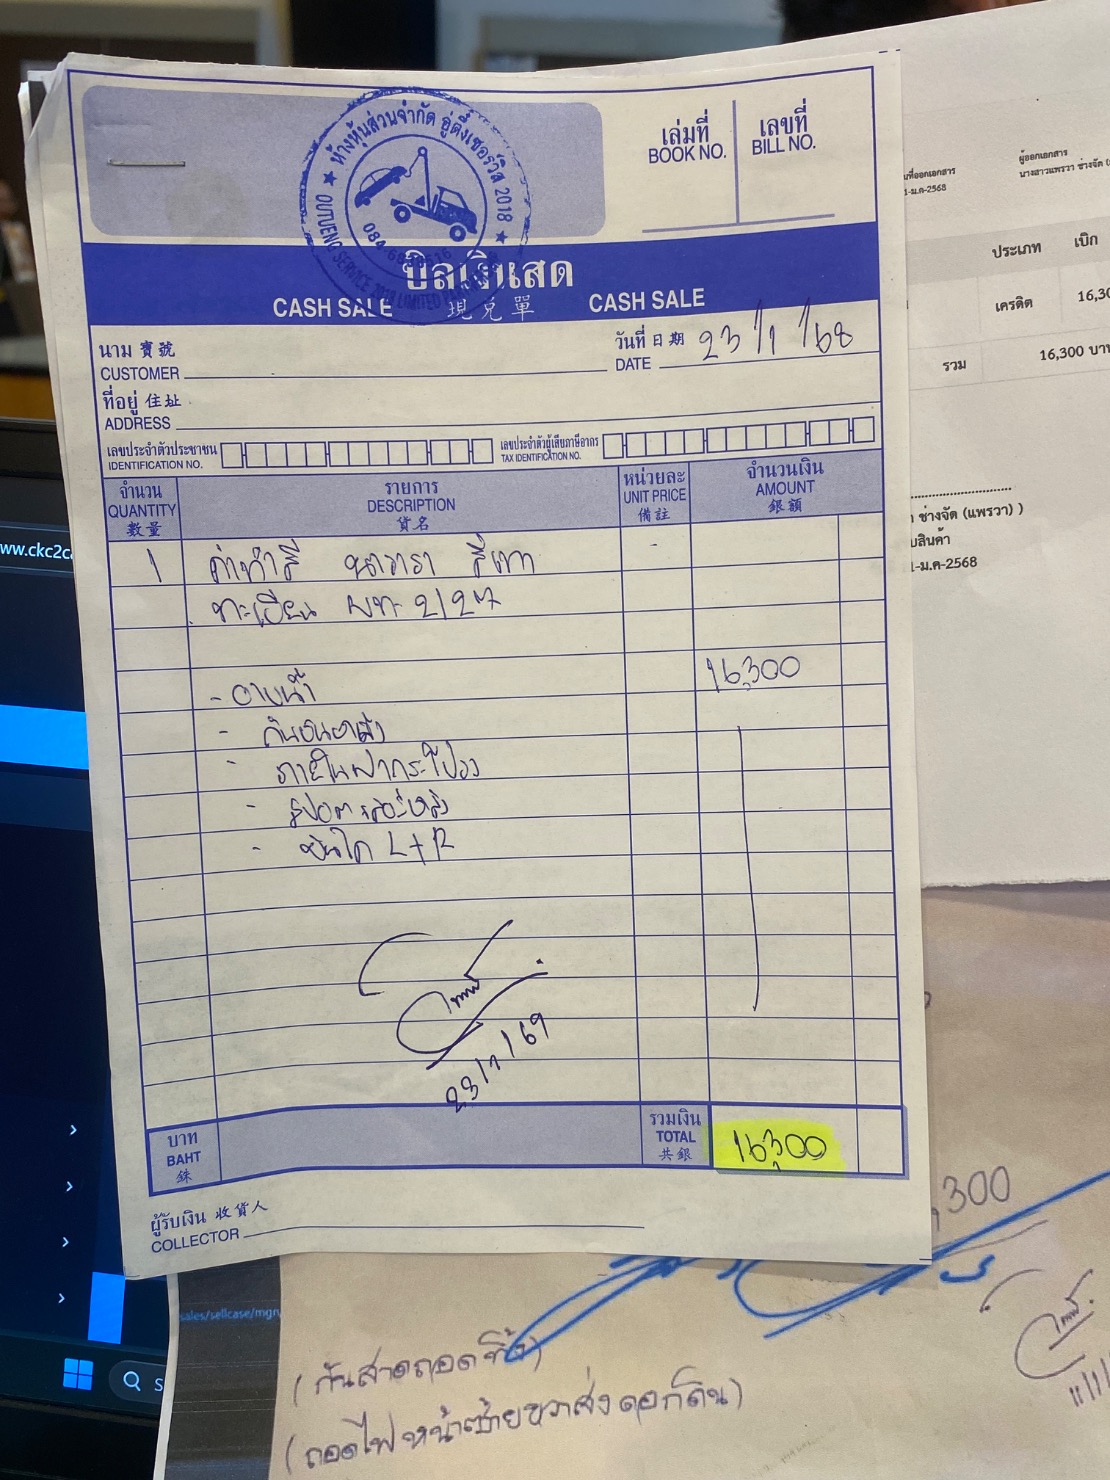 ห้างหุ้นส่วนจำกัด อู่ตึ๋งเซอร์วิส 2018
OUTUENG SERVICE 2018 LIMITED
เล่มที่
BOOK NO.
เลขที่
BILL NO.
บิลเงินสด
CASH SALE 現兌單 CASH SALE
นาม 寶號
CUSTOMER
วันที่ 日期
DATE 23/1/68
ที่อยู่ 住址
ADDRESS
เลขประจำตัวประชาชน
IDENTIFICATION NO.
เลขประจำตัวผู้เสียภาษีอากร
TAX IDENTIFICATION NO.
จำนวน
QUANTITY
數量
รายการ
DESCRIPTION
貨名
หน่วยละ
UNIT PRICE
備註
จำนวนเงิน
AMOUNT
銀額
1 ค่าทำสี นาวารา สีเทา -
ทะเบียน ผท 2127
- อาบน้ำ 16,300
- กันชนหลัง
- ภายในฝากระโปรง
-
- บันได L+R
23/1/69
บาท
BAHT
銖
รวมเงิน
TOTAL
共銀
16,300
ผู้รับเงิน 收貨人
COLLECTOR
ผู้ออกเอกสาร
นางสาวแพรวา ช่างจัด
นที่ออกเอกสาร
1-ม.ค-2568
ประเภท เบิก
เครดิต 16,30
รวม 16,300 บาท
ช่างจัด (แพรวา) )
บสินค้า
1-ม.ค-2568
ww.ckc2c
sales/sellcase/mgr
,300
(กันสาดถอดทิ้ง)
(ถอดไฟหน้าซ้ายขวาส่งดอกดิน)